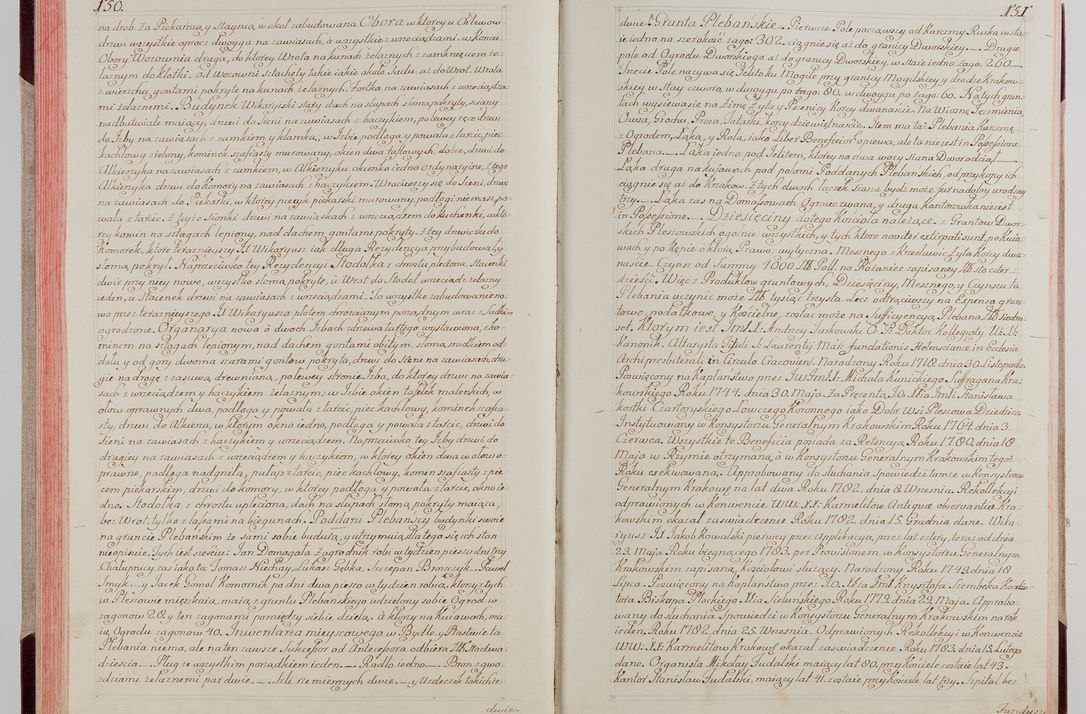 150.
na drob. Za Piekarnią y Staynią w okoł zabudowana Obora w ktorey u Chlewow
drzwi wszystkie oprocz dwoyga na zawiasach, a wszystkie z wrzeciądzami. w Koncu
Obory Wozownia druga, do ktorey Wrota na kunach żelaznych z zamknięciem że-
laznym do kłotki. Od Wozowni sztachety takie iakie około Sadu, aż do Wrot. Wrota
z wierzchu gontami pokryte na kunach żelaznych. Fortka na zawiasach z wrzeciądza-
mi żelaznemi. Budynek Wikaryiski stary dach na słupach słomą pokryty, sciany
nadbutwiałe maiący, drzwi do Sieni na zawiasach z haczykiem, po lewey ręce drzwi
do Izby na zawiasach z zamkiem y klamką, w Izbie podłoga y powała z tarcic, piec
kachlowy zielony, kominek szafiasty murowany, okien dwa taflowych dobre, drzwi do
Alkierzyka na zawiasach z zamkiem, w Alkierzyku okienko iedno ordynaryine, z tego
Alkierzyka drzwi do Komory na zawiasach z haczykiem. Wrociwszy się do Sieni, drzwi
na zawiasach do Piekarni, w ktorey piecyk piekarski murowany, podłogi niemasz, po-
wała z tarcic. Z teyże Sionki drzwi na zawiaskach z wrzeciądzem do kuchenki, w kto-
rey komin na sztagach lepiony, nad dachem gontami pokryty. Z tey drzwiczki do
Komorek, ktore teraznieyszy X Wikaryusz iak długa Rezydencya przybudował y
słomą pokrył. Naprzeciwko tey Rezydencyi Stodołka z chrustu pleciona, Staienki
dwie przy niey nowe, wszystko słomą pokryte, u Wrot do Stodoł wrzeciądz żelazny
ieden, u Staienek drzwi na zawiasach z wrzeciądzami. To wszystko zabudowanie no-
wo przez teraznieyszego X Wikaryusza płotem chrościanym porządnym wraz z Sadkiem
ogrodzone. Organarya nowa o dwoch Izbach z drzewa tartego wystawiona, z ko-
minem na sztagach lepionym, nad dachem gontami obitym, słomą srodkiem od
dołu y od gory dwoma szarami gontow pokryta, drzwi do Sieni na zawiasach, dru-
gie na drogę z zasuwą drewnianą, po lewey stronie Izba, do ktorey drzwi na zawia-
sach z wrzeciądzem y haczykiem żelaznym; w Izbie okien tafelek malenkich, w
ołow oprawnych dwa, podłoga y powała z tarcic, piec kachlowy, kominek szafia-
sty, drzwi do Alkierza, w ktorym okno iedno, podłoga y powała z tarcic, drzwi do
Sieni na zawiasach z haczykiem y wrzeciądzem. Naprzeciwko tey Izby drzwi do
drugiey na zawiasach z wrzeciądzem y haczykiem, w ktorey okien dwa w ołow o-
prawne, podłoga nadgniła, pułap z tarcic, piec kachlowy, komin szafiasty z pie-
cem piekarskim, drzwi do komory, w ktorey podłoga y powała z tarcic, okno ie-
dno. Stodołka z chrostu upleciona, dach na słupach słomą pokryty maiąca,
bez Wrot, tylko z lasami na biegunach. Poddani Plebanscy budynki swoie
na gruncie Plebanskim że sami sobie buduią, y utrzymuią, dla tego się ich stan
nieopisuie. Tych iest sześciu: Jan Domagała Zagrodnik robi w tydzień pieszo dni trzy
Chałupnicy zaś iako to: Tomasz Kiechay, Łukasz Gębka, Szczepan Bronszyk, Paweł
Smyk. y Jacek Gomol Komornik po dni dwa pieszo w tydzien robią, ktorzy z tych
w Pleszowie mieszkaią, maią z gruntu Plebańskiego udzielony sobie Ogrod w
zagonow 28. y ten zagonami pomiędzy siebie dzielą. a ktory na Kuiawach, ma-
ią Ogrodu zagonow 40. Inwentarza mieyscowego w Bydle y Ptastwie ta
Plebania niema, ale na ten zawsze Sukcessor od Antecessora odbiera Zł. Sto dwa-
dzieścia. Pług ze wszystkim porządkiem ieden. Radło iedno. Bron z gwo-
zdziami żelaznemi par dwie. Szle rzemiennych dwie. y Uzdeczek takich że
dwie
151
dwie. Grunta Plebanskie. Pierwsze Pole począwszy od Karczmy Ruska w sta-
ie iedno na szerokość zago: 302. ciągnie się aż do granicy Dworskiey. Drugie
pole od Ogrodu Dworskiego aż do granicy Dworskiey, w staie iedno zago. 260.
Trzecie Pole nazywa się Jelito ku Mogile przy granicy Mogilskiey y drodze Krakow-
skiey w Stay czworo, w dwoygu po zago: 80. w dwoygu po zago: 60. Na tych grun-
tach wysiewa się na Zimę Zyta y Pszenicy Korcy dwanaście. Na Wiosnę Jęczmienia,
Owsa, Grochu, Prosa, Tatarki, korcy dziewiętnaście. Item ma taż Plebania Karczmę
z Ogrodem, Łąką, y Rolą, iako Liber Beneficior: opiewa, ale ta nie iest in Possessione
Plebana. Łąka iedna pod Jelitem, ktorey na dwa wozy siana Dwor odziął.
Łąka druga na kujawach pod polami Poddanych Plebanskich, od przykopy ich
ciągnie się aż do Krakow. Z tych dwoch łączek siana będzie może fur na dobry urodzay
trzy. Łąka zaś na Domajowach Ogrucz zwana, y druga Kantorowka nie iest
in Possessione. Dziesięciny do tego Kościoła należące. z Gruntow Dwor-
skich Pleszowskich ogolnie wszystkich, y tych ktore noviter extirpati sunt, po Kuia-
wach, y po Kępie około, Prawo wytyczna Mesznego z Krzesławic Zyta Korcy dwa-
naście. Czynsz od Summy 4000 Zł. Poll: na Rożaniec zapisaney Zł. sto czter-
dzieści. Więc z Produktow gruntowych, Dziesięciny, Mesznego, y Czynszu ta
Plebania uczynić może Zł. tysiąc trzysta. Lecz odtrąciwszy na Expensa grun-
towe, podatkowe, y Kościelne, zostać może na Sufficyencyą Plebana Zł. siedm-
set. Ktorym iest Jmć X. Andrzey Jurkowski O. P. Doktor Kollegiaty WW. SS.
Kanonik, Altarysta Tituli S. Laurenty Mart. fundationis Helmsciana in Ecclesia
Archipresbiterali in Circulo Cracovien. Narodzony Roku 1718. dnia 30. Listopada.
Poswięcony na Kapłaństwo przez JW. Jmć X. Michała Kunickiego Suffragana Kra-
kowskiego Roku 1744. dnia 30. Maja. Za Prezentą JO. Xcia Jmci Stanisława
Kostki Czartoryskiego Łowczego Koronnego iako Dobr Wsi Pleszowa Dziedzica
Instytuowany w Konsystorzu Generalnym Krakowskim Roku 1764. dnia 3.
Czerwca. Wszystkie te Beneficia posiada za Retencyą Roku 1780. dnia 18
Maja w Rzymie otrzymaną, a w Konsystorzu Generalnym Krakowskim tegoż
Roku exekwowaną. Approbowany do słuchania Spowiedzi tamże w Konsystorzu
Generalnym Krakows: na lat dwa Roku 1782. dnia 8. Wrzesnia. Rekollekcyi
odprawionych w Konwencie WW. XX. Karmelitow Antiquae observantiae Kra-
kowskim okazał zaswiadczenie Roku 1782. dnia 15. Grudnia dane. Wika-
ryusz X. Jakob Kowalski pierwey przez Applikacyą, przez lat cztery, teraz od dnia
23. Maja Roku bieżącego 1783. per Provisionem w Konsystorzu Generalnym
Krakowskim zapisaną, Kościołowi służący. Narodzony Roku 1749. dnia 18
Lipca. Poswięcony na Kapłanstwo przez JO. Xcia Jmć Krzysztofa Szembeka Koadiu-
tora Biskupa Płockiego, Xcia Sieluńskiego Roku 1779. dnia 29. Maja. Approbo-
wany do słuchania Spowiedzi w Konsystorzu Generalnym Krakowskim na rok
ieden, Roku 1782. dnia 25. Wrzesnia. Odprawionych Rekollekcyi w Konwencie
WW. XX. Karmelitow Krakows: okazał zaswiadczenie Roku 1783. dnia 15. Lutego
dane. Organista Mikołay Judalski maiący lat 80. przy Kościele zostaie lat 43.
Kantor Stanisław Judalski, maiący lat 41. zostaie przy Kościele lat trzy. Szpital bez
Funduszu